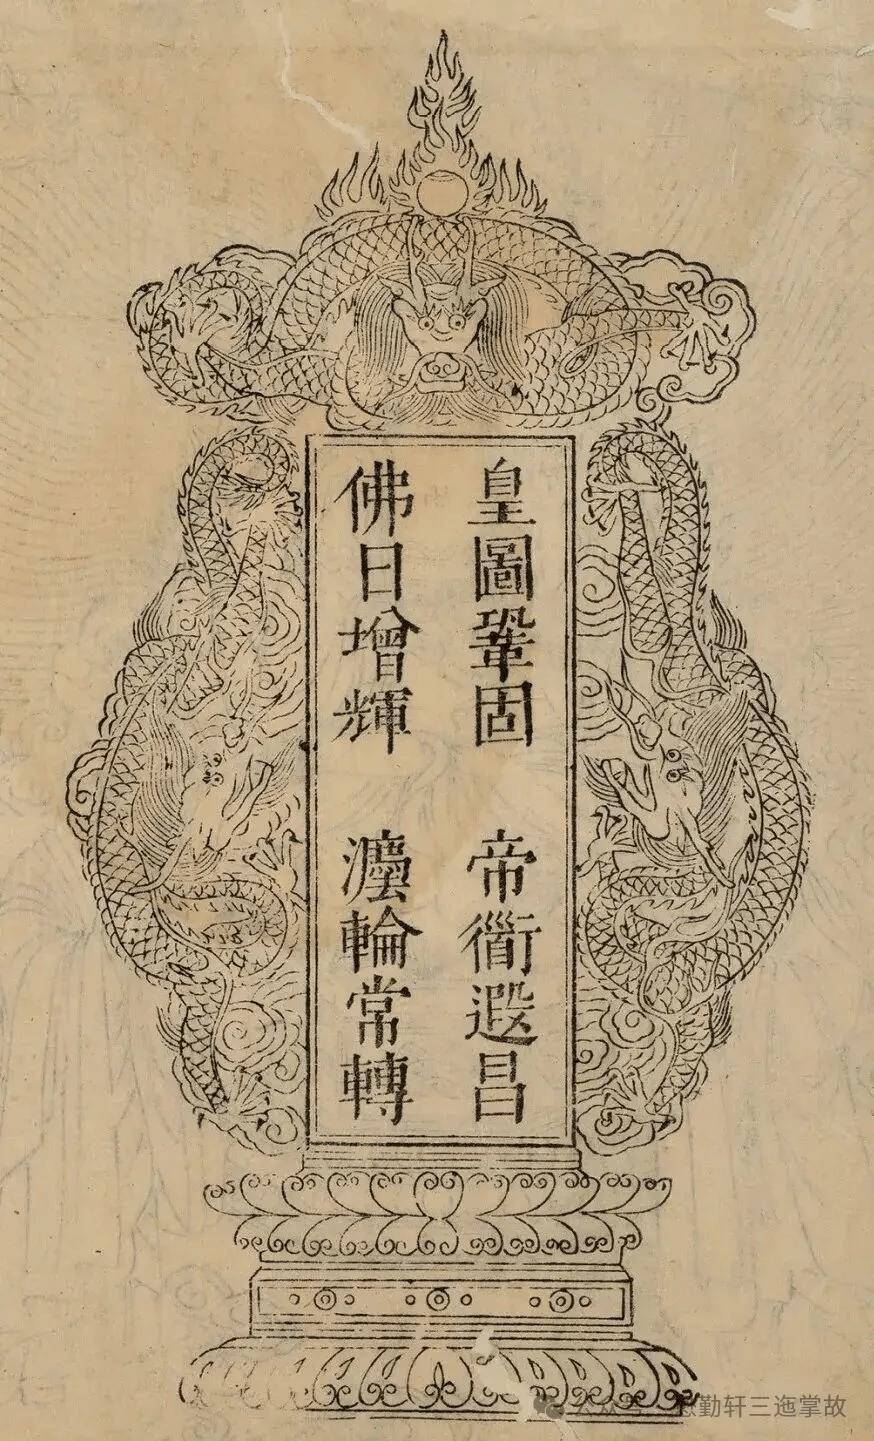 皇圖鞏固　帝衜遐昌
佛日增輝　灋輪常轉
公众号 勤轩三迤掌故